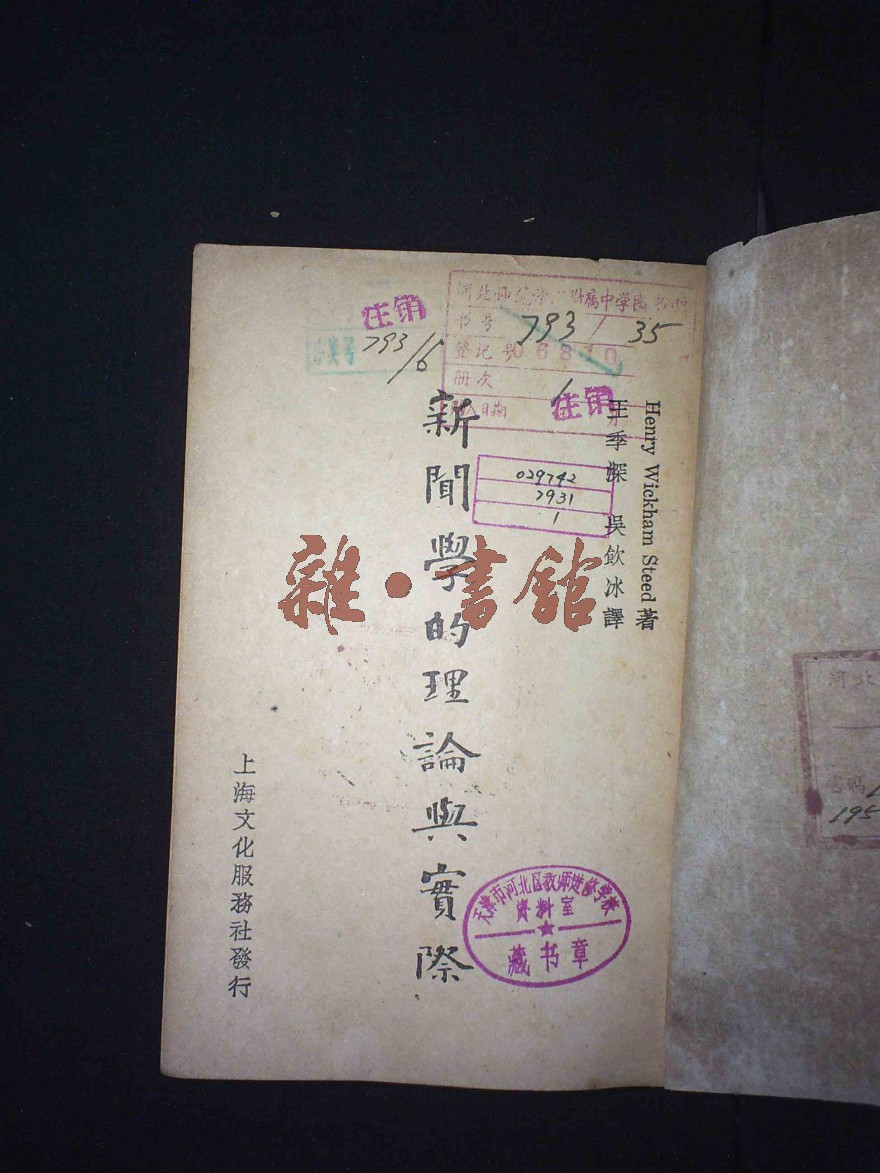 Henry Wickham Steed 著
王季深 吳飲冰譯
新聞學的理論與實際
上海文化服務社發行
注销
分类号
793/6
中学图书
书号 793/35
登记号 06810
册次 1
日期
注销
029742
7931
1
雜·書館
天津市河北区教师进修学校
资料室
藏书章
河北
195